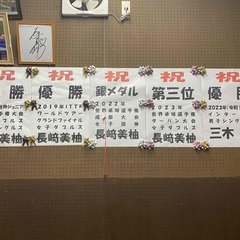 祝
勝
長﨑美柚
祝
優勝
2019年ITTF
ワールドツアー
グランドファイナル
女子ダブルス
長﨑美柚
祝
銀メダル
2022年
世界卓球選手権
成都大会
女子団体
長﨑美柚
祝
第三位
2023年
世界卓球選手権
ダーバン大会
女子ダブルス
長﨑美柚
祝
優勝
2023年
インター
男子シング
三木